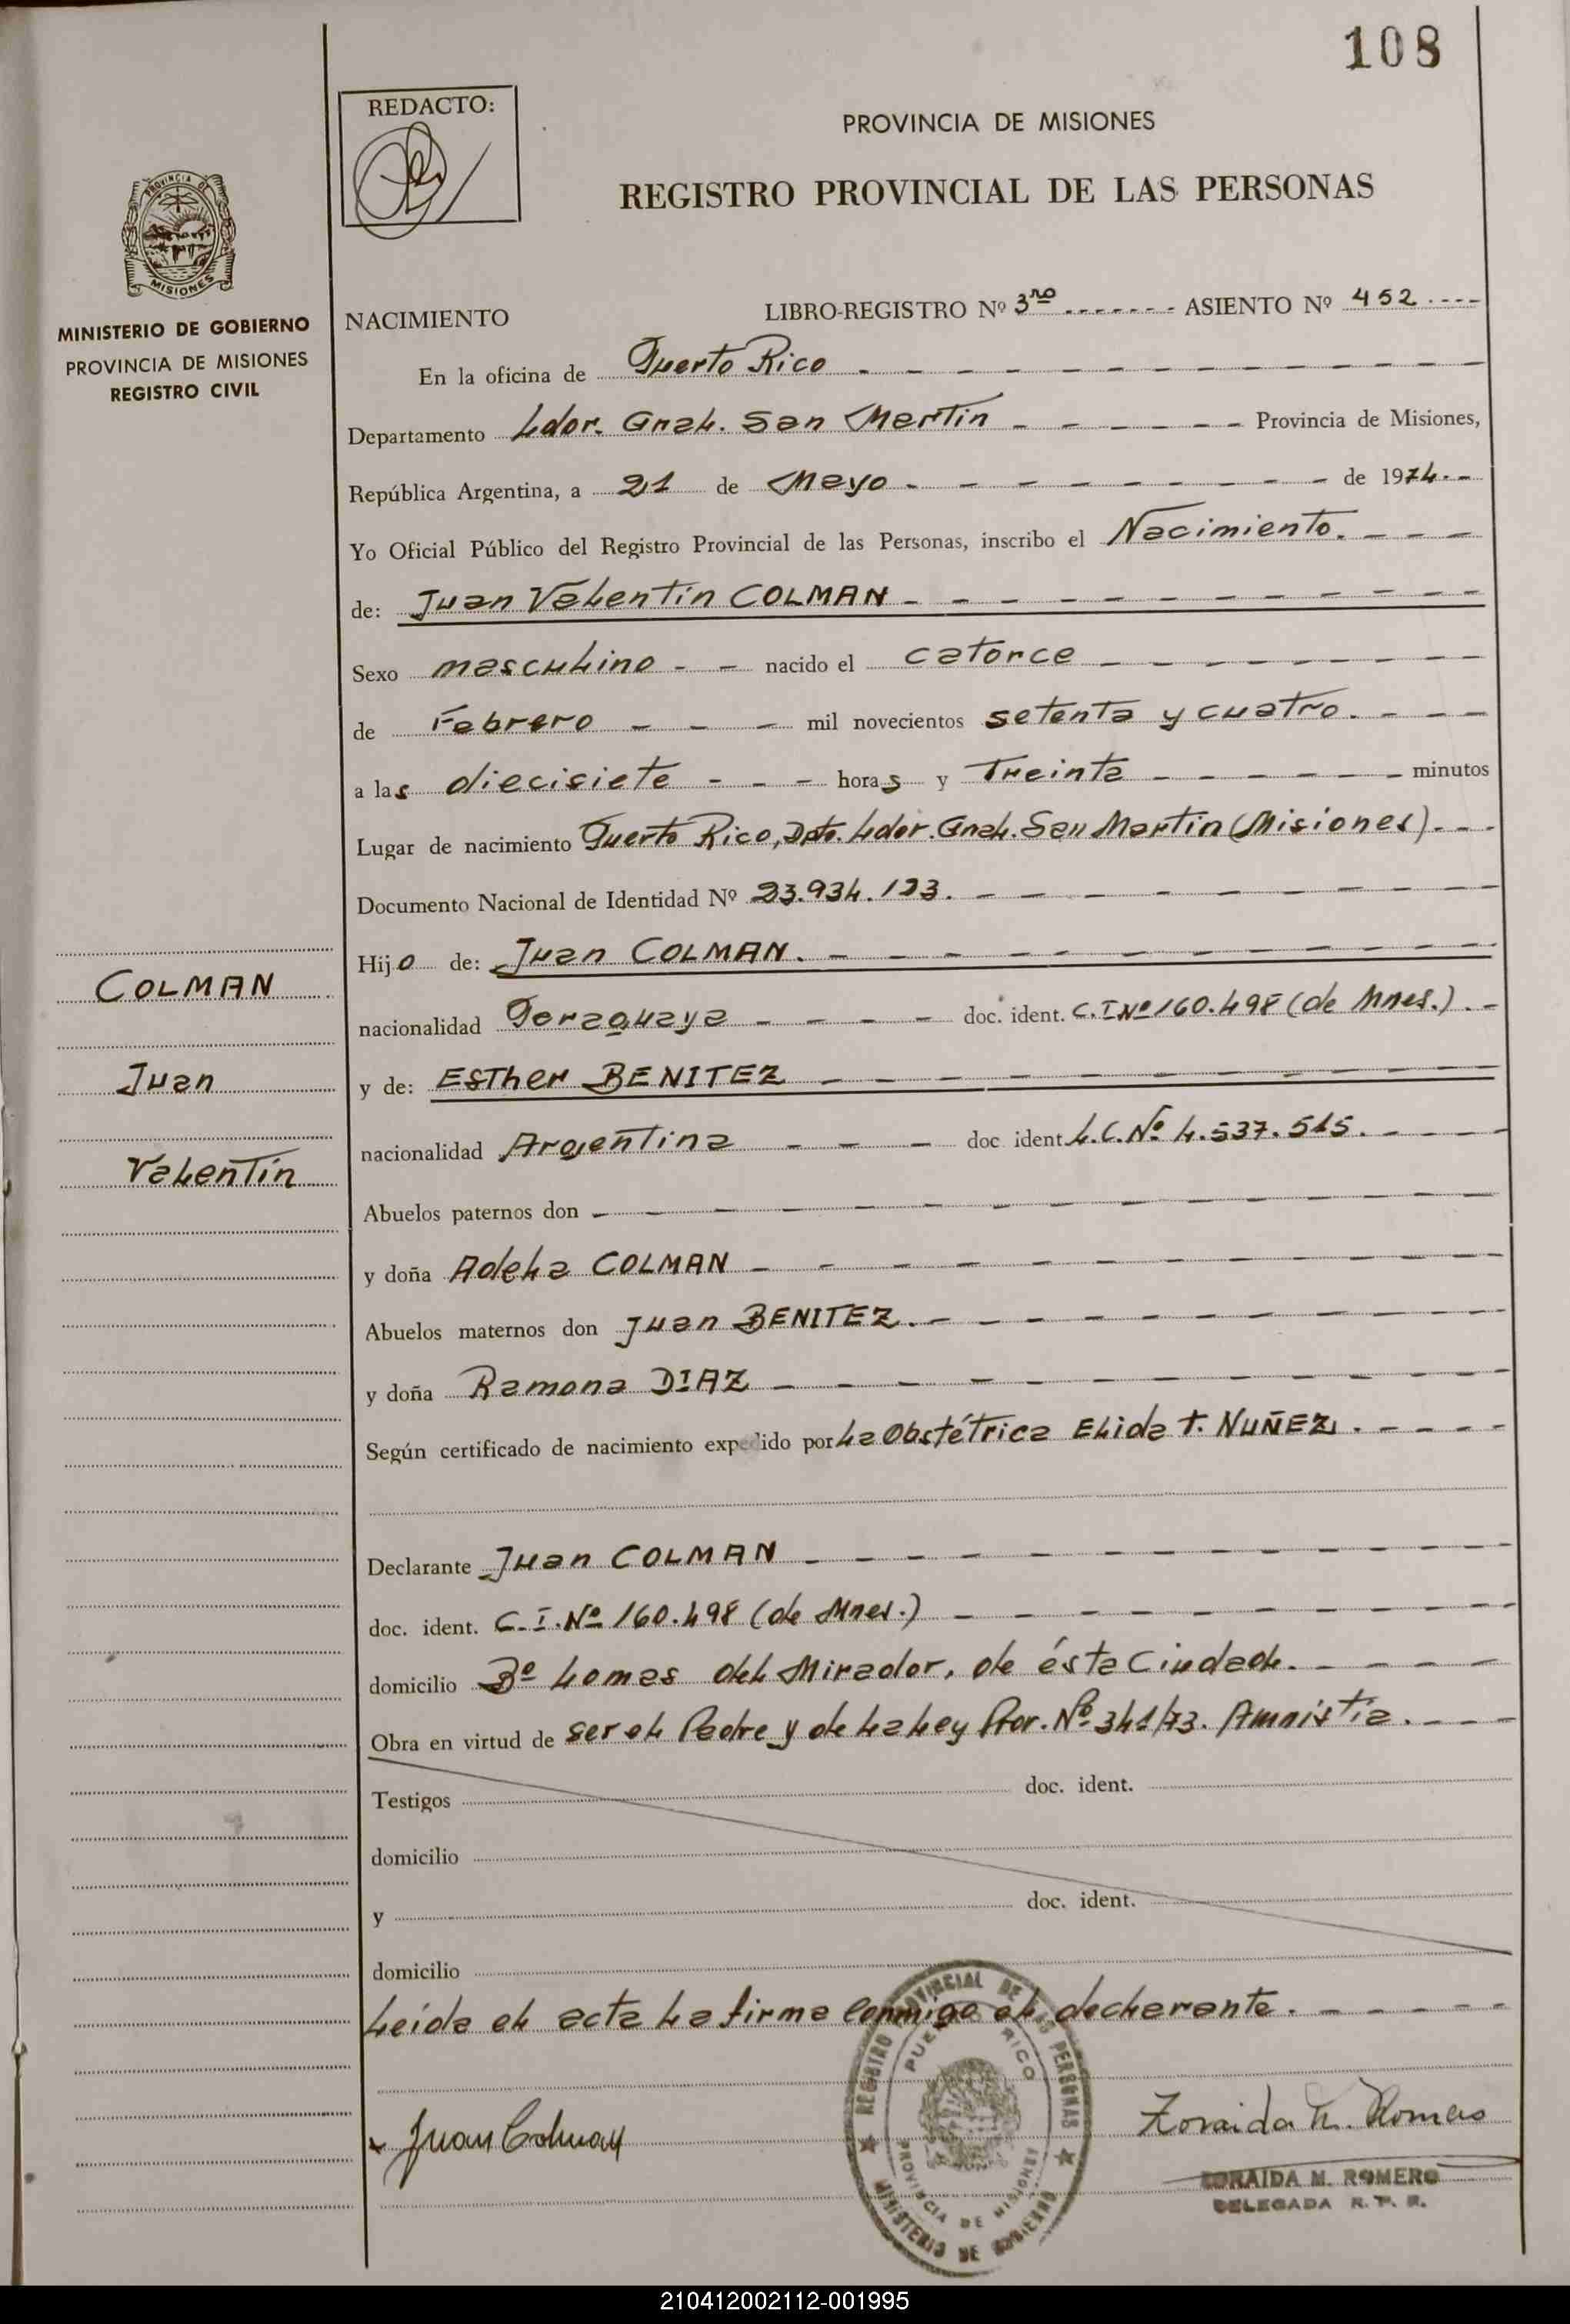 108
REDACTO:
PROVINCIA DE MISIONES
REGISTRO PROVINCIAL DE LAS PERSONAS
PROVINCIA DE
MISIONES
MINISTERIO DE GOBIERNO
PROVINCIA DE MISIONES
REGISTRO CIVIL
NACIMIENTO LIBRO-REGISTRO Nº 3ro ASIENTO Nº 452
En la oficina de Puerto Rico
Departamento Ldor. Gral. San Martín Provincia de Misiones,
República Argentina, a 21 de Mayo de 1974
Yo Oficial Público del Registro Provincial de las Personas, inscribo el Nacimiento.
de: Juan Valentín COLMAN
Sexo masculino nacido el catorce
de Febrero mil novecientos setenta y cuatro.
a las diecisiete horas y Treinta minutos
Lugar de nacimiento Puerto Rico, Dpto. Ldor. Gral. San Martín (Misiones).
Documento Nacional de Identidad Nº 23.934.123.
Hijo de: Juan COLMAN.
nacionalidad Paraguaya doc. ident. C.I Nº 160.498 (de Mnes.).
y de: Esther BENITEZ
nacionalidad Argentina doc ident L.C. Nº 4.537.515.
Abuelos paternos don
y doña Adela COLMAN
Abuelos maternos don Juan BENITEZ.
y doña Ramona DIAZ
Según certificado de nacimiento expedido por La Obstétrica Elida T. NUÑEZ.
Declarante Juan COLMAN
doc. ident. C.I. Nº 160.498 (de Mnes.)
domicilio Bº Lomas del Mirador, de ésta Ciudad.
Obra en virtud de ser el Padre y de la Ley Pror. Nº 341/73. Amnistía.
Testigos doc. ident.
domicilio
y doc. ident.
domicilio
Leída el acta la firma conmigo el declarante.
COLMAN
Juan
Valentín
Juan Colman
REGISTRO PROVINCIAL DE LAS PERSONAS
PUERTO RICO
PROVINCIA DE MISIONES
MINISTERIO DE GOBIERNO
Zoraida M. Romero
ZORAIDA M. ROMERO
DELEGADA R. P. P.
210412002112-001995